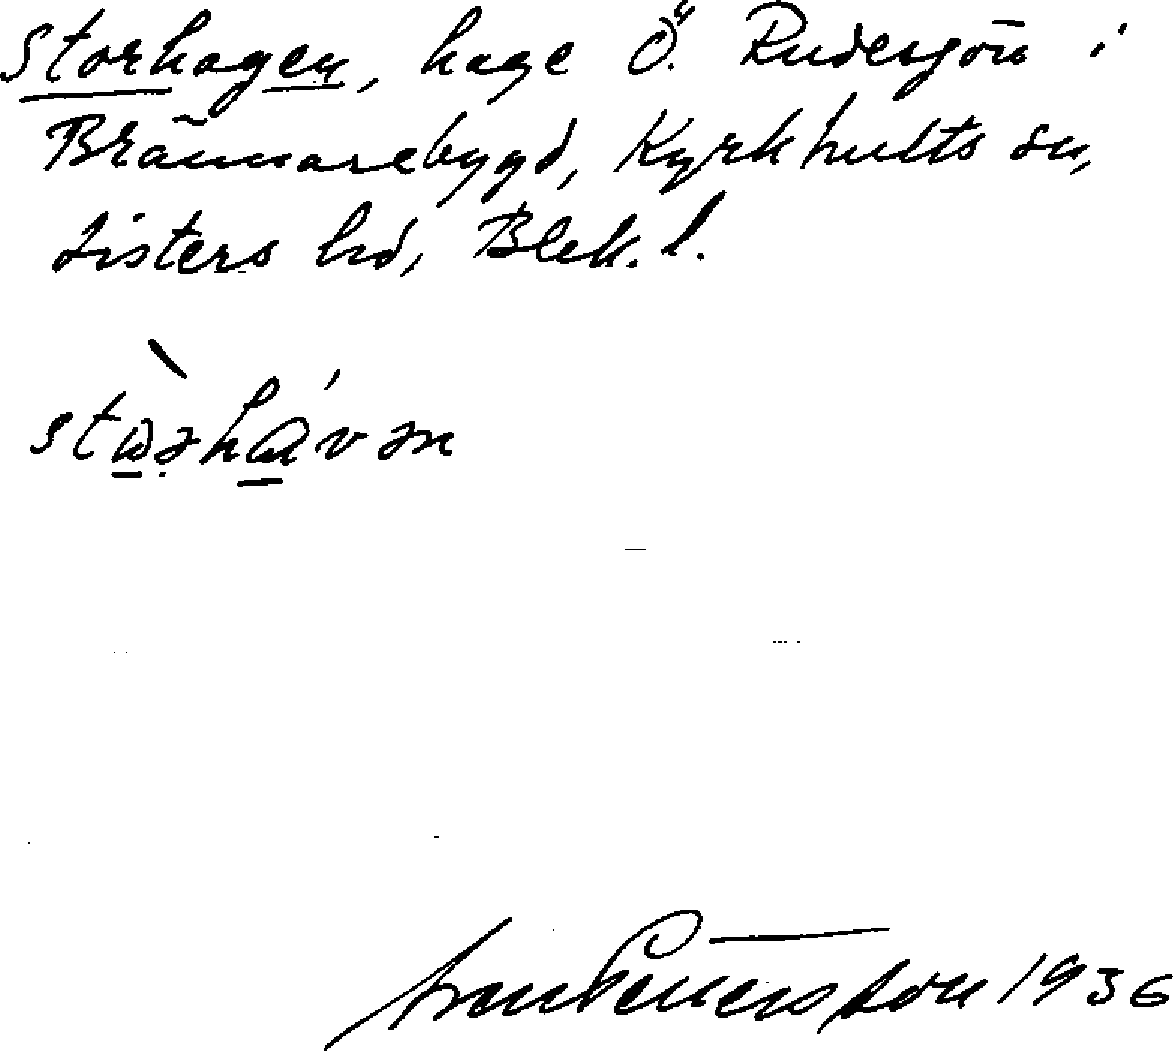 Storhagen, hage Ö. Rudesjön i
Brännarebygd, Kyrkhults sn,
Listers hd, Blek. l.
Pettersson 1936